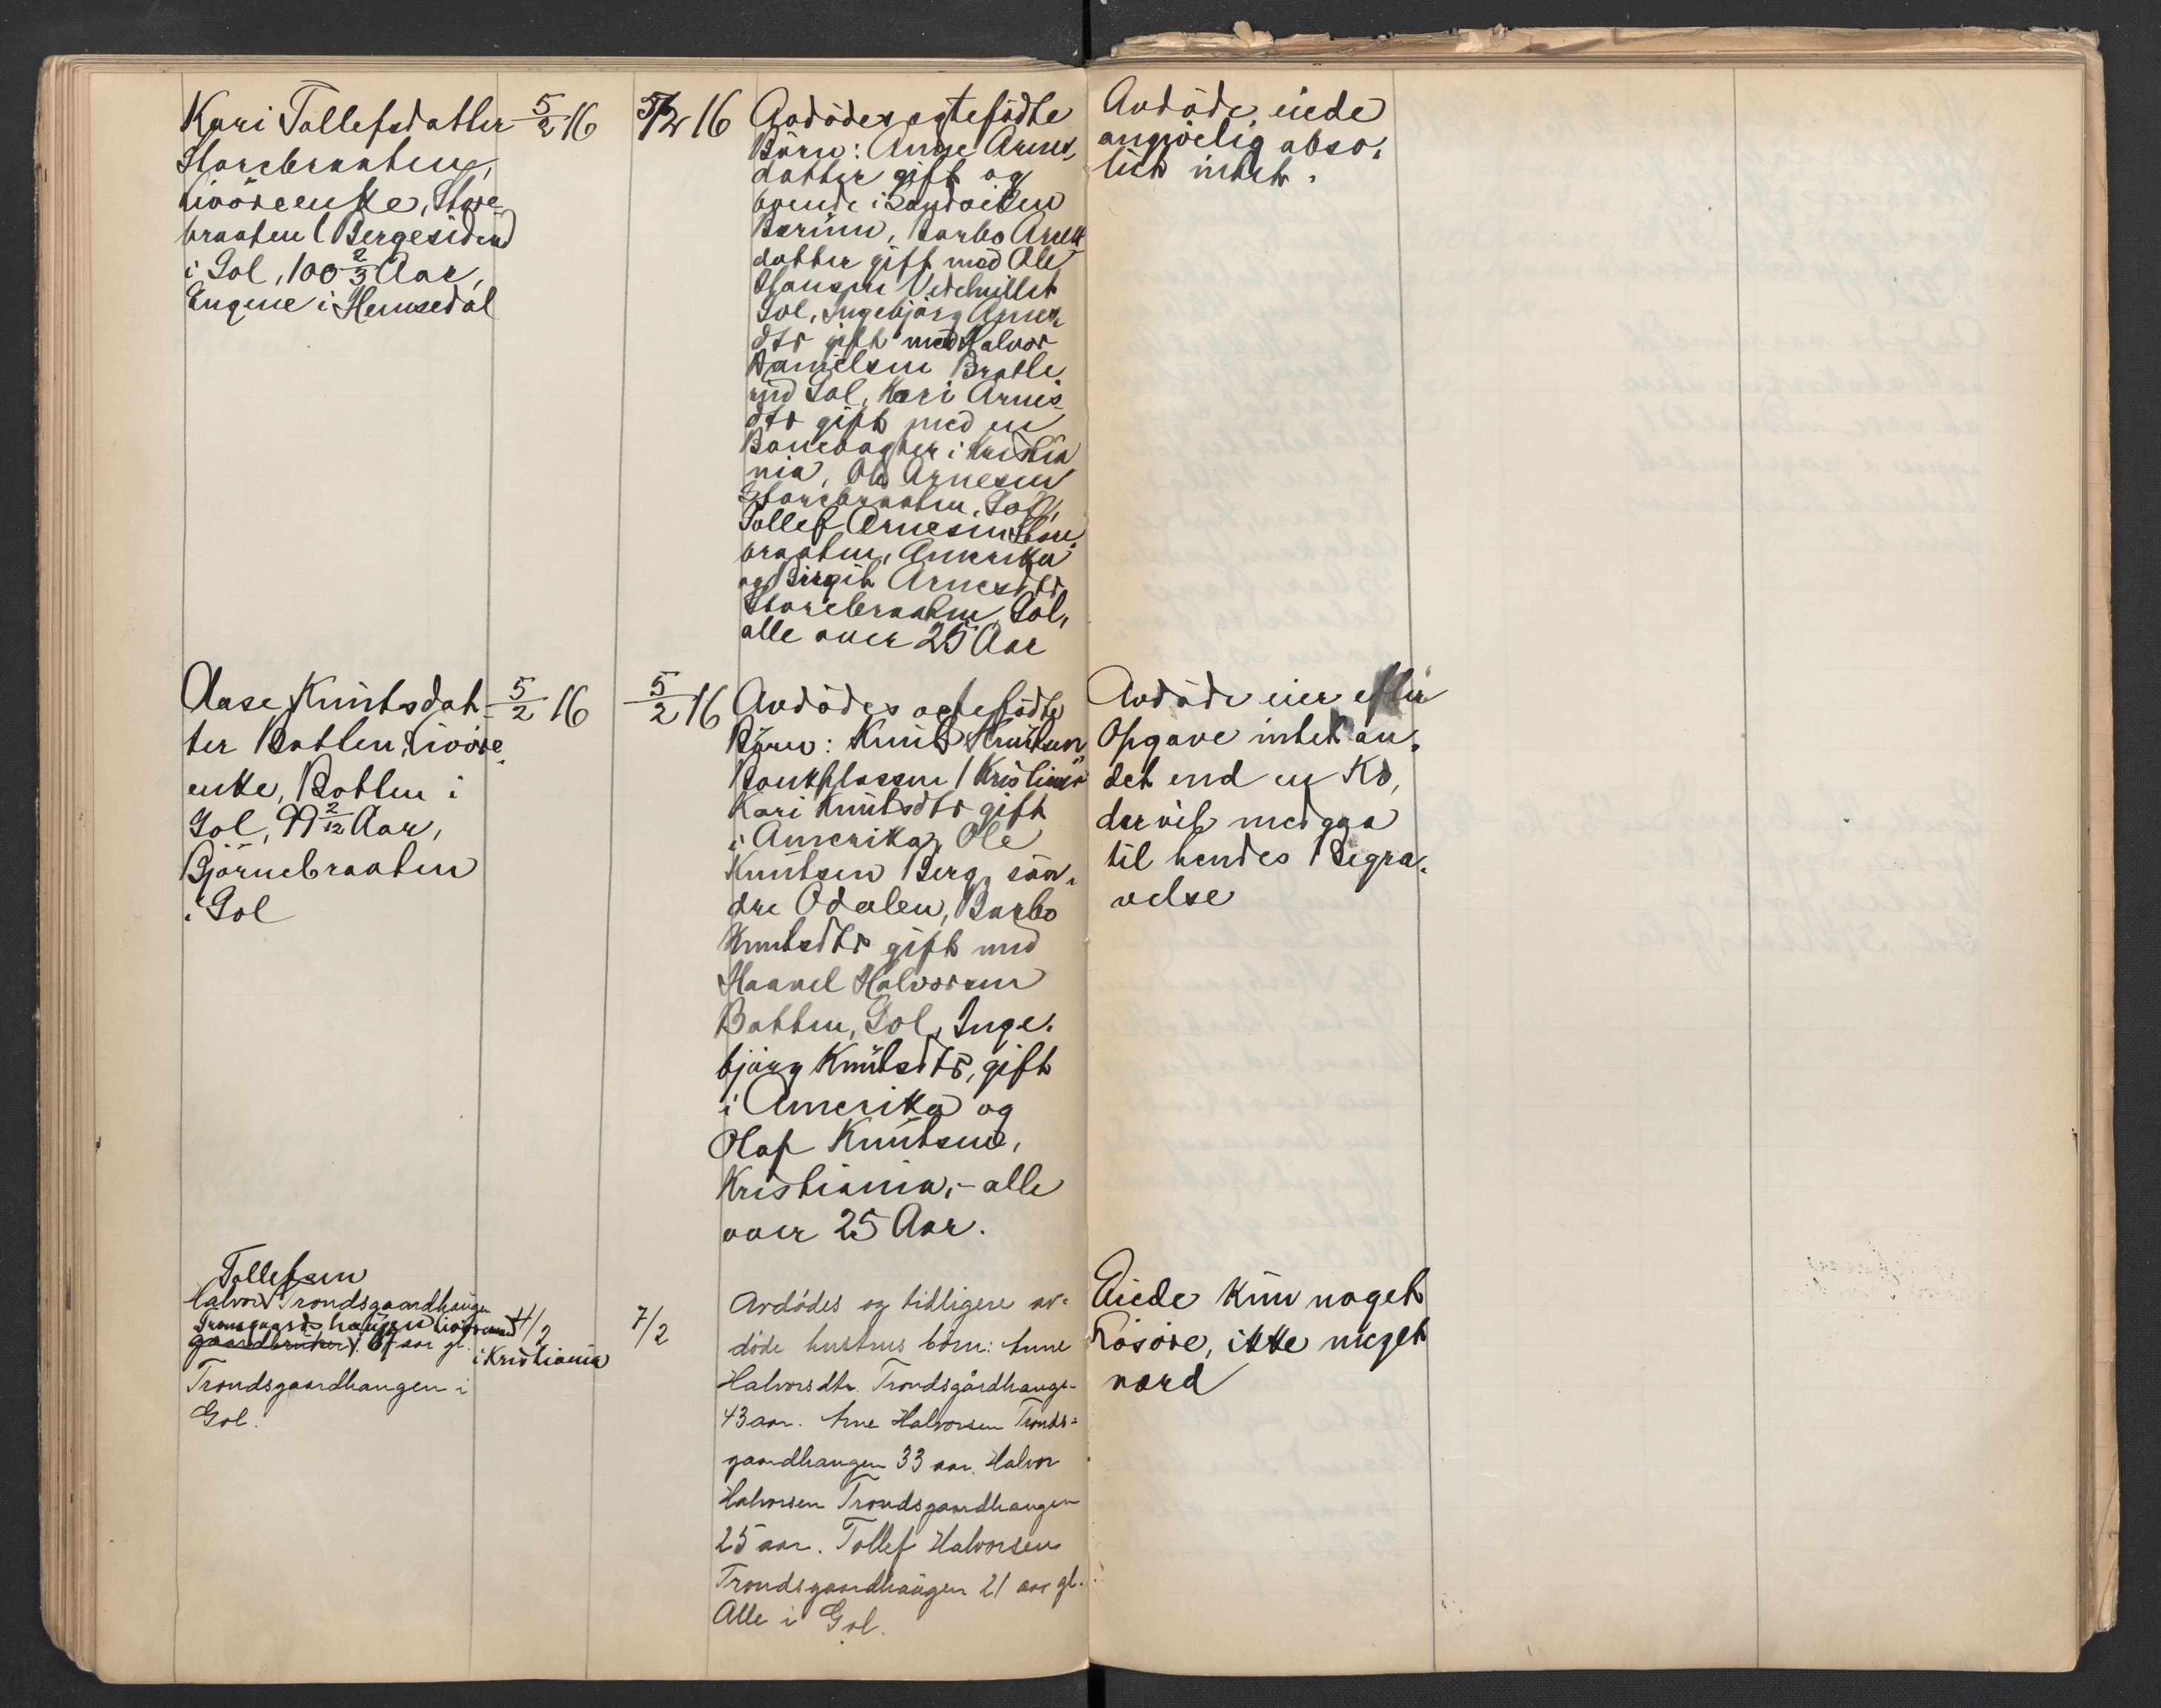 Kari Tollefsdatter
Storebraaten,
livöreenke, Store-
braaten (Bergesiden)
i Gol, 100 2/3 Aar,
Engene i Hemsedal
5/2 16
5/2 16
Avdödes egtefödte
Börn: Anne Arnes
datter gift og
boende i Sandviken
Bærum, Barbo Arnes
datter gift med Ole
Hansen
Gol, Ingebjörg Arnes
dtr gift med Halvor
Danielsen Brotle
rud Gol, Kari Arnes
dtr gift med en
Banevogter i Kristia
nia, Ole Arnesen
Storebraaten, Gol,
Tollef Arnesen Store
braaten, Amerika
og Birgit Arnesdtr
Storebraaten, Gol,
alle over 25 Aar
Avdöde eiede
angivelig abso-
lut intet.
Aase Knutsdat-
ter Botlen, livöre
enke, Botlen i
Gol, 99 2/12 Aar,
Björnebraaten
i Gol
5/2 16
5/2 16
Avdödes egtefödte
Börn: Knut Knutsen
Bankplassen 1 Kristiania
Kari Knutsdtr gift
i Amerika, Ole
Knutsen Berg, sön-
dre Odalen, Barbo
Knutsdtr gift med
Haavel Halvorsen
Botten, Gol, Inge-
björg Knutsdtr, gift
i Amerika og
Olaf Knutsen,
Kristiania, - alle
over 25 Aar.
Avdöde eier efter
Opgave intet an-
det end en Ko,
der vil medgaa
til hendes Begra-
velse
Tollefsen
Halvor Trondsgaardhaugen
gaardbruker 67 aar gl.
Trondsgaardhaugen i
Gol.
4/2
i Kristiania
7/2
Avdödes og tidligere av-
döde hustrus börn: Anne
Halvorsdtr. Trondsgårdhauge-
43 aar. Arne Halvorsen Tronds-
gaardhaugen 33 aar. Halvor
Halvorsen Trondsgaardhaugen
25 aar. Tollef Halvorsen
Trondsgaardhaugen 21 aar gl.
Alle i Gol.
Eiede kun noget
Lösöre, ikke meget
værd